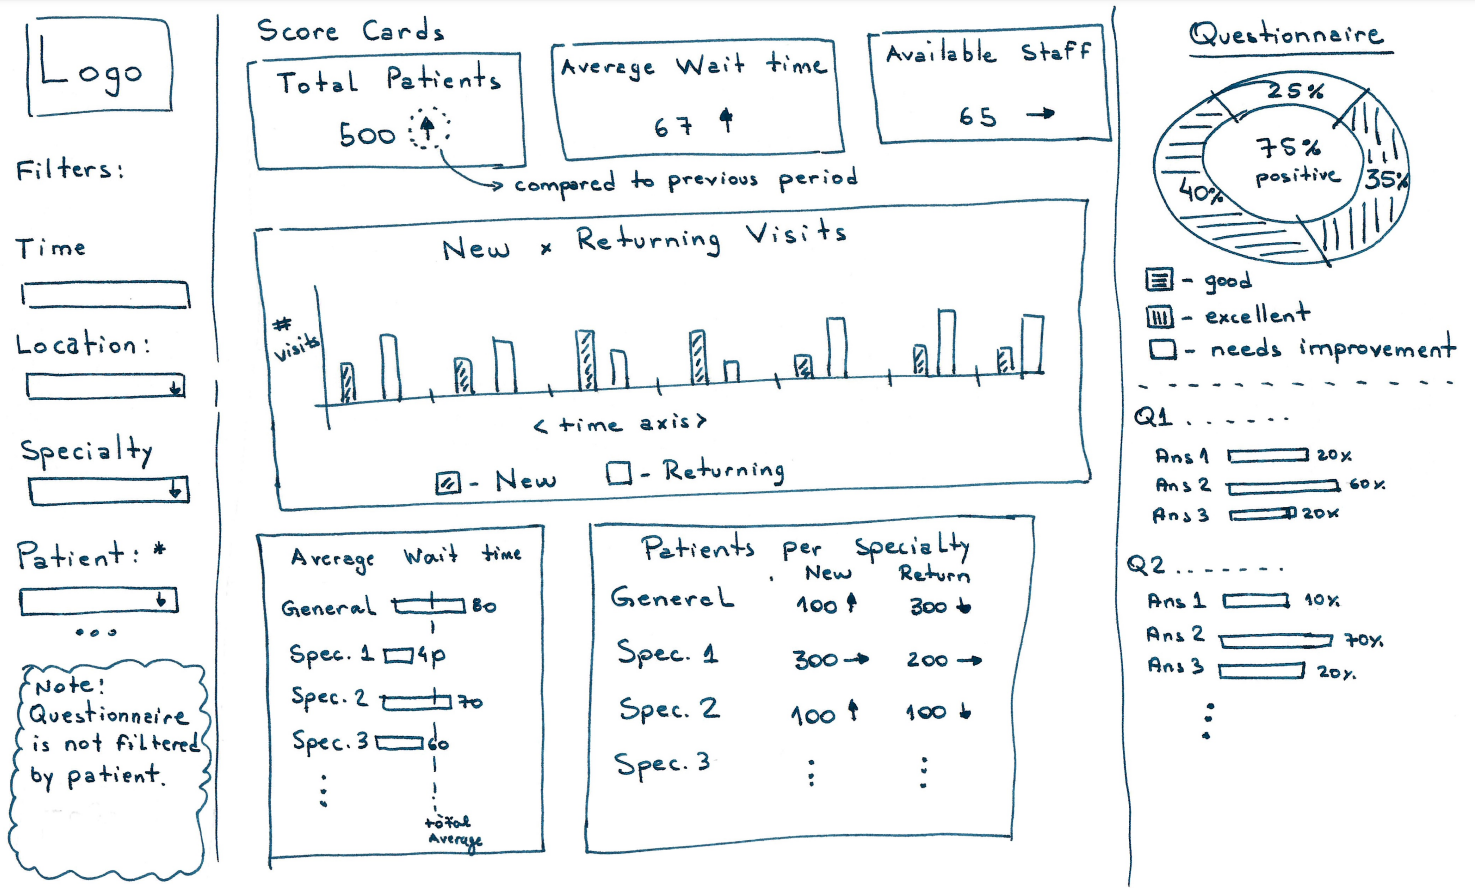 Logo
Filters:
Time
Location:
Specialty
Patient: *
...
Note!
Questionnaire
is not filtered
by patient.
Score Cards
Total Patients
500
Average Wait time
67
Available Staff
65
compared to previous period
New x Returning Visits
#
visits
< time axis >
- New
- Returning
Average Wait time
General 80
Spec. 1 40
Spec. 2 70
Spec. 3 60
total
Average
Patients per Specialty
New Return
General 100 300
Spec. 1 300 200
Spec. 2 100 100
Spec. 3
Questionnaire
25%
75%
positive
35%
40%
- good
- excellent
- needs improvement
Q1.......
Ans 1 20%
Ans 2 60%
Ans 3 20%
Q2.......
Ans 1 10%
Ans 2 70%
Ans 3 20%